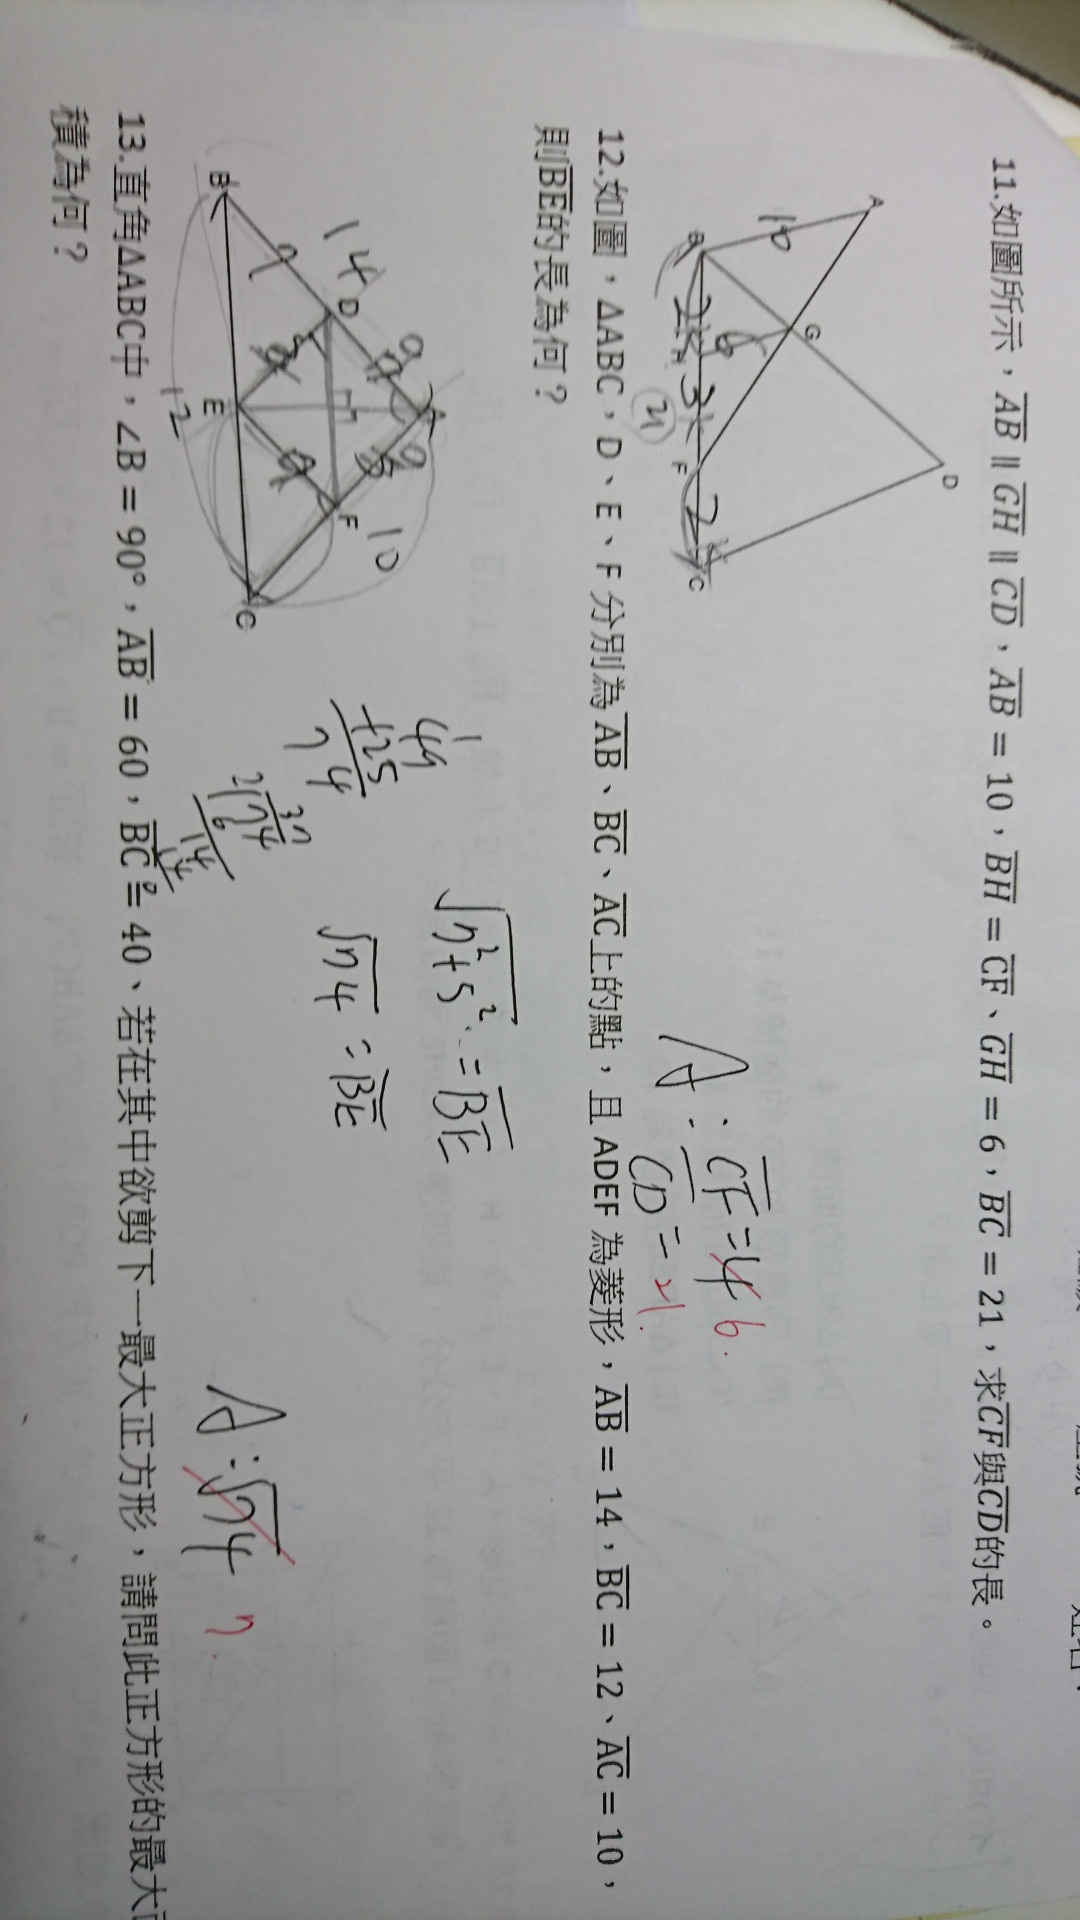 11.如圖所示，AB ∥ GH ∥ CD，AB = 10，BH = CF、GH = 6，BC = 21，求CF與CD的長。
A
D
G
B
H
F
C
10
6
2k
3k
2k
21
A: CF=4 6.
CD= 21.
12.如圖，ΔABC，D、E、F 分別為AB、BC、AC上的點，且 ADEF 為菱形，AB = 14，BC = 12、AC = 10，
則BE的長為何？
A
B
C
D
E
F
14
10
12
49
+25
74
37
2√74
6
14
14
0
√7²+5² = BE
√74 = BE
A:√74 7.
13.直角ΔABC中，∠B = 90°，AB = 60，BC = 40、若在其中欲剪下一最大正方形，請問此正方形的最大面
積為何？